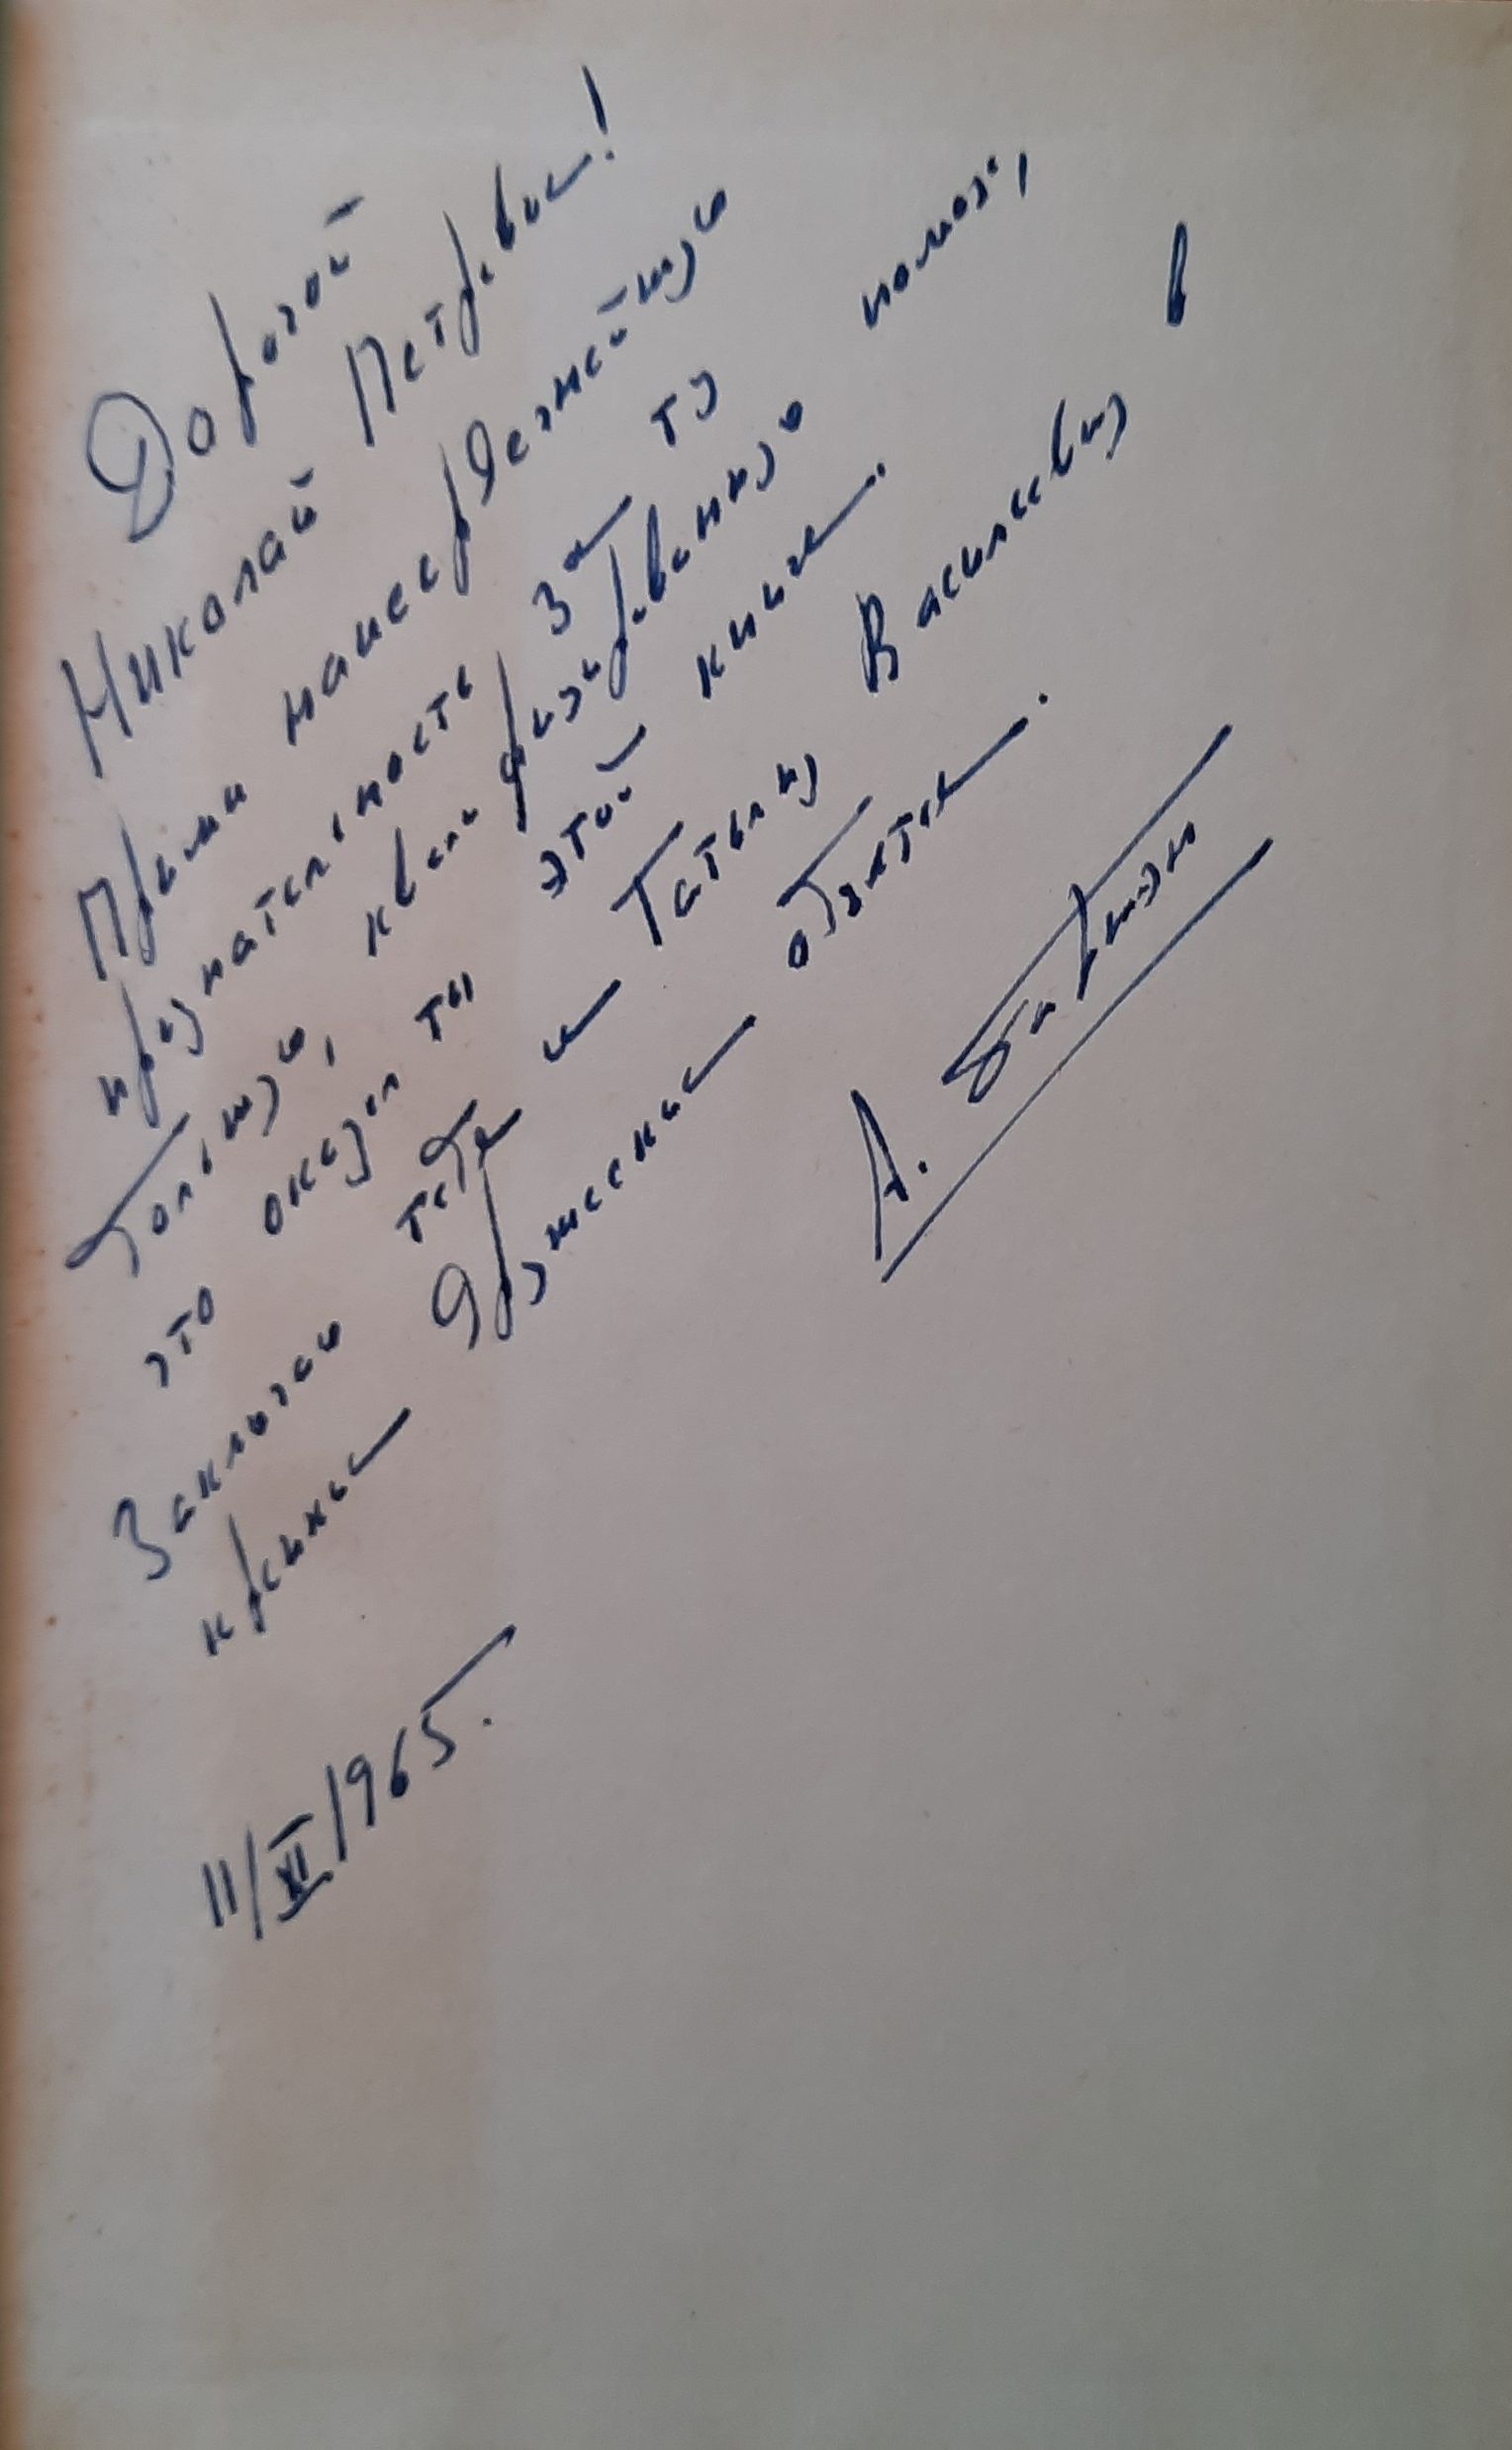 Дорогой
Николай Петрович!
Прими наисердечнейшую
признательность за ту
большую, квалифицированную помощь,
что оказал ты этой книге.
Заключаю тебя и Татьяну Васильевну в
крепкие дружеские объятия.
А.
11/XI/1965.